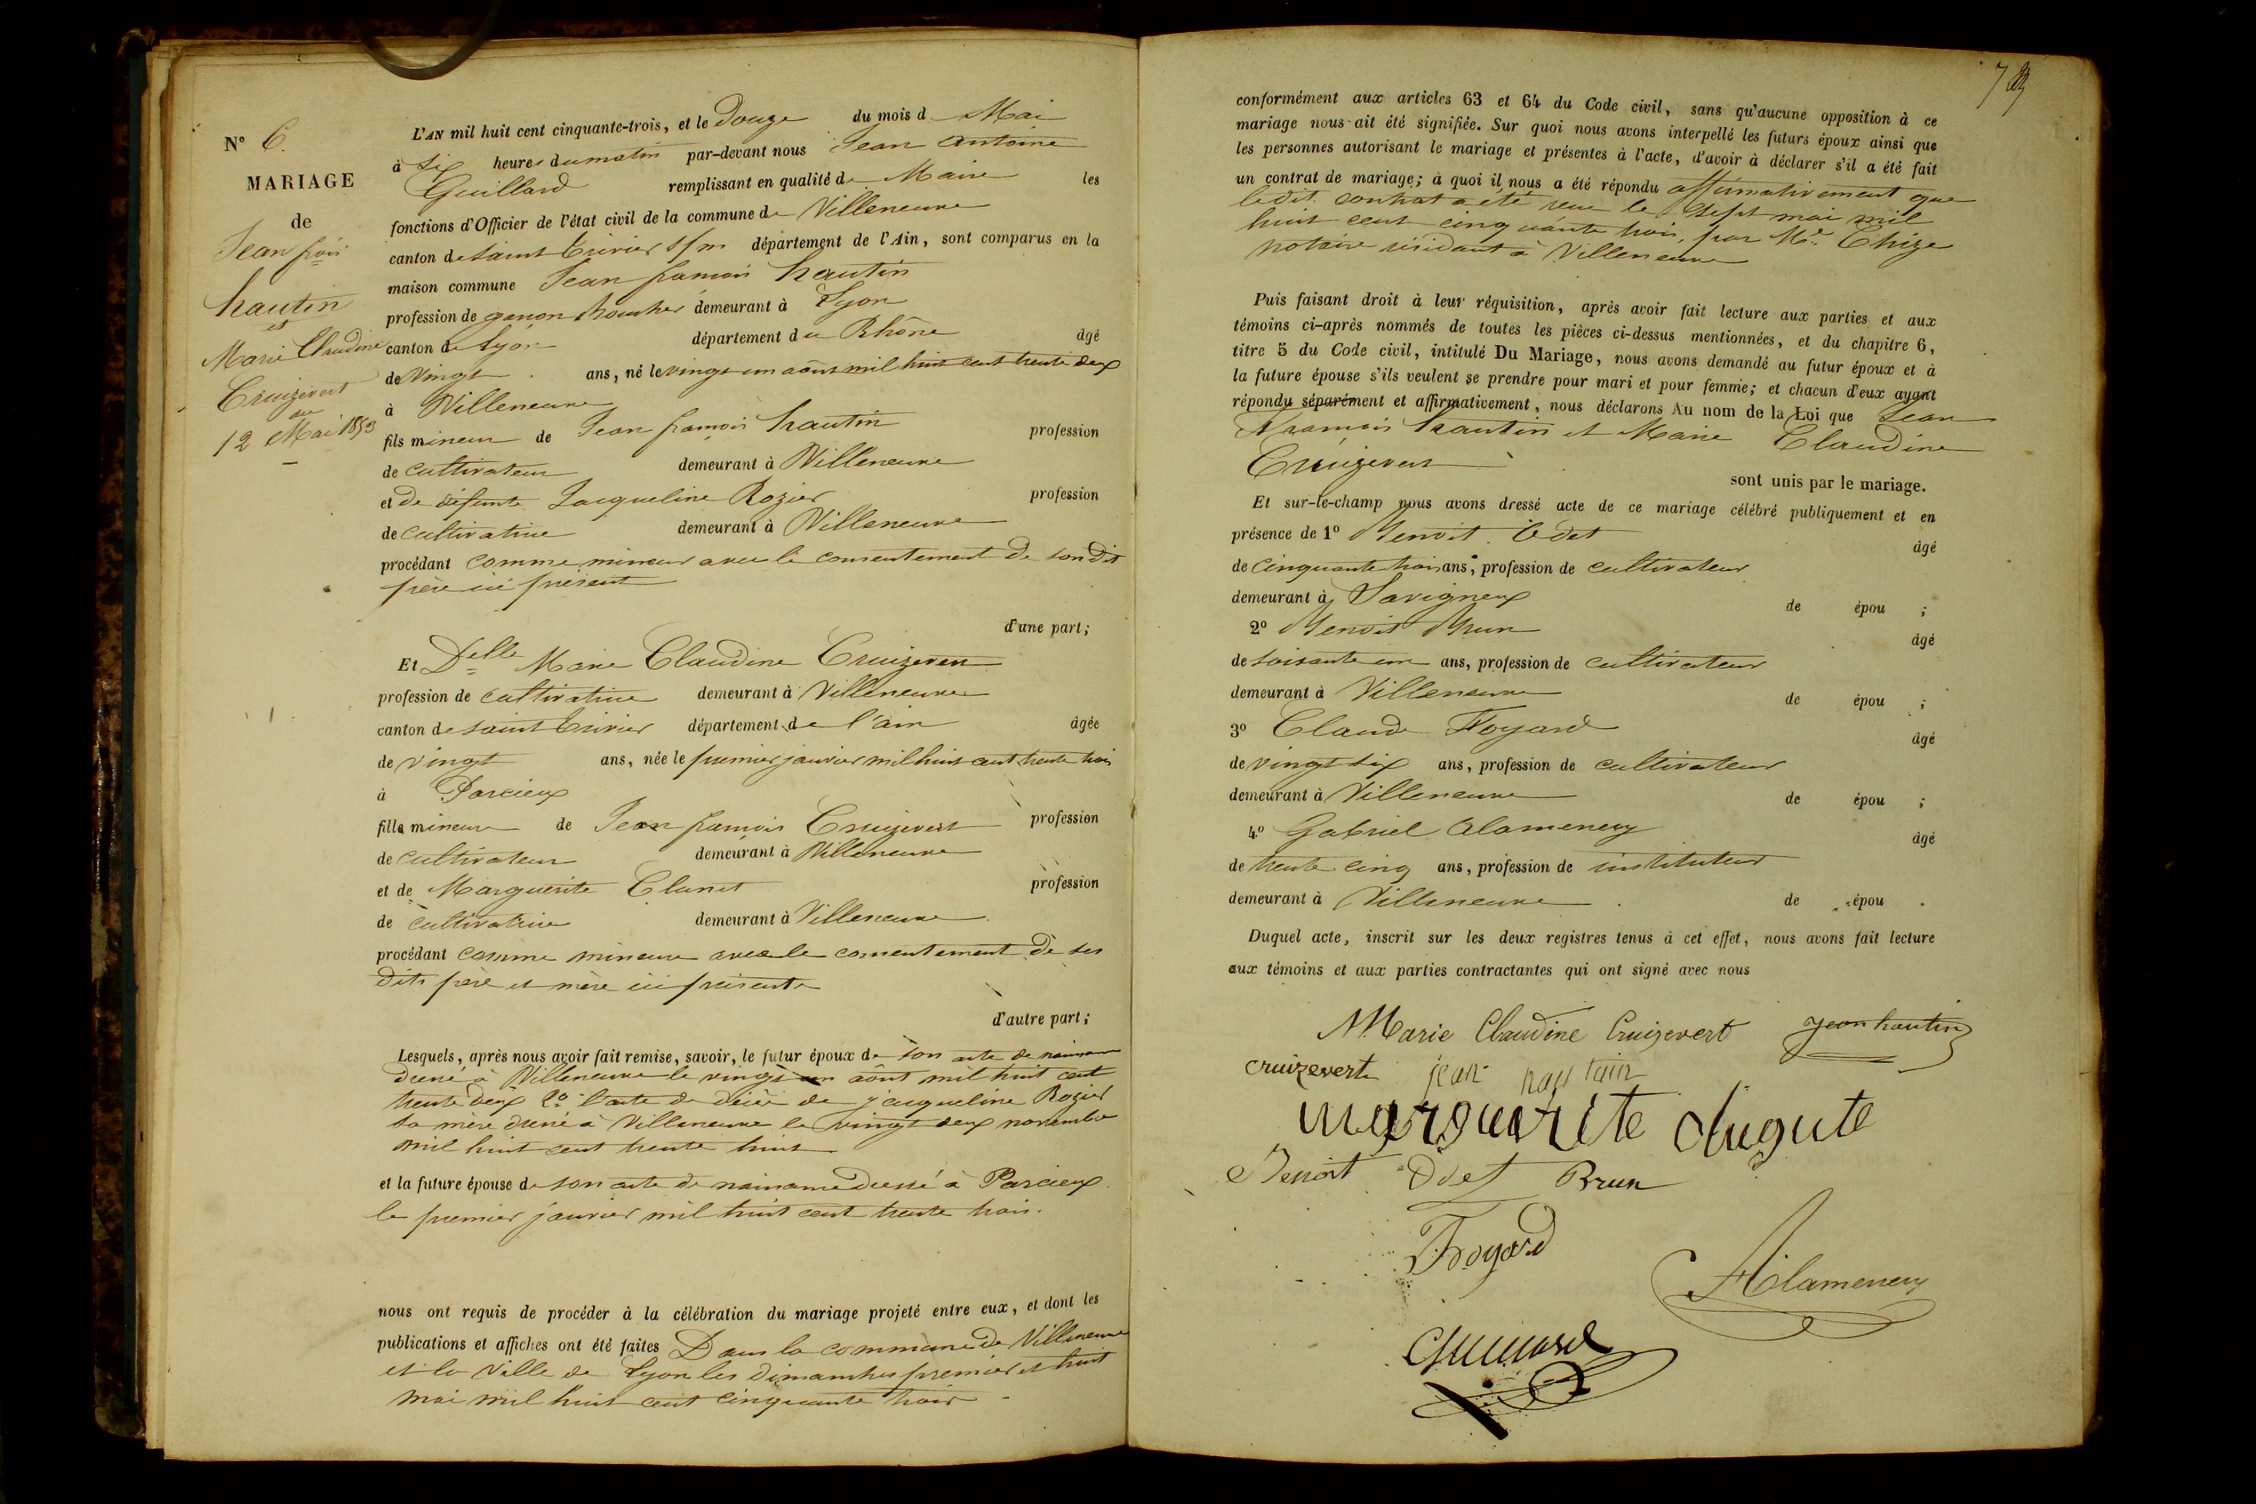 N° 6.
MARIAGE
de
Jean fçois
hautin
et
Marie Claudine
Cruizevert
du
12 Mai 1853
L'AN mil huit cent cinquante-trois, et le Douze du mois d Mai
à six heures du matin par-devant nous Jean Antoine
Guillard remplissant en qualité de Maire les
fonctions d'Officier de l'état civil de la commune de Villeneuve
canton de saint Trivier s/m département de l'Ain, sont comparus en la
maison commune Jean françois hautin
profession de garçon demeurant à Lyon
canton de Lyon département du Rhône âgé
de Vingt ans, né le vingt un août mil huit cent trente deux
à Villeneuve
fils mineur de Jean françois hautin profession
de cultivateur demeurant à Villeneuve
et de défunte Jacqueline Rozier profession
de cultivatrice demeurant à Villeneuve
procédant comme mineur avec le consentement de son dit
père ici présent
d'une part;
Et Delle Marie Claudine Cruizevert
profession de cultivatrice demeurant à Villeneuve
canton de saint Trivier département de l'ain âgée
de vingt ans, née le premier janvier mil huit cent trente trois
à Parcieux
fille mineure de Jean françois Cruizevert profession
de cultivateur demeurant à Villeneuve
et de Marguerite Clunet profession
de cultivatrice demeurant à Villeneuve
procédant comme mineure avec le consentement de ses
dits père et mère ici présents
d'autre part;
Lesquels, après nous avoir fait remise, savoir, le futur époux de son acte de naissance
dressé à Villeneuve le vingt un août mil huit cent
trente deux 2° l'acte de décès de jacqueline Rozier
sa mère dressé à Villeneuve le vingt deux novembre
mil huit cent trente huit
et la future épouse de son acte de naissance dressé à Parcieux
le premier janvier mil huit cent trente trois.
nous ont requis de procéder à la célébration du mariage projeté entre eux, et dont les
publications et affiches ont été faites Dans la commune de Villeneuve
et la Ville de Lyon les dimanches premier et huit
mai mil huit cent cinquante trois
conformément aux articles 63 et 64 du Code civil, sans qu'aucune opposition à ce
mariage nous ait été signifiée. Sur quoi nous avons interpellé les futurs époux ainsi que
les personnes autorisant le mariage et présentes à l'acte, d'avoir à déclarer s'il a été fait
un contrat de mariage; à quoi il nous a été répondu affirmativement que
le dit contrat a été reçu le sept mai mil
huit cent cinquante trois, par Me Chize
notaire résidant à Villeneuve
Puis faisant droit à leur réquisition, après avoir fait lecture aux parties et aux
témoins ci-après nommés de toutes les pièces ci-dessus mentionnées, et du chapitre 6,
titre 5 du Code civil, intitulé Du Mariage, nous avons demandé au futur époux et à
la future épouse s'ils veulent se prendre pour mari et pour femme; et chacun d'eux ayant
répondu séparément et affirmativement, nous déclarons Au nom de la Loi que Jean
françois hautin et Marie Claudine
Cruizevert
sont unis par le mariage.
Et sur-le-champ nous avons dressé acte de ce mariage célébré publiquement et en
présence de 1° Benoit Odet âgé
de cinquante trois ans, profession de cultivateur
demeurant à Savigneux de épou ;
2° Benoit Brun âgé
de soixante un ans, profession de cultivateur
demeurant à Villeneuve de épou ;
3° Claude Foyard âgé
de vingt six ans, profession de cultivateur
demeurant à Villeneuve de épou ;
4° Gabriel Alamenery âgé
de trente cinq ans, profession de instituteur
demeurant à Villeneuve de épou .
Duquel acte, inscrit sur les deux registres tenus à cet effet, nous avons fait lecture
aux témoins et aux parties contractantes qui ont signé avec nous
Marie Claudine Cruizevert jean hautin
cruizevert jean
marguerite
Benoit Odet Brun
Foyard
Alamenery
Guillard